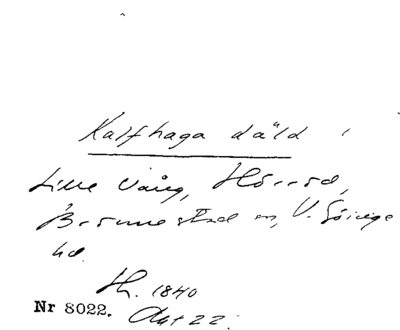 Kalfhaga däld
Lille Vång, Hörröd,
Brönnestad sn, V. Göinge
hd.
Sh. 1840
Akt 22.
Nr 8022.